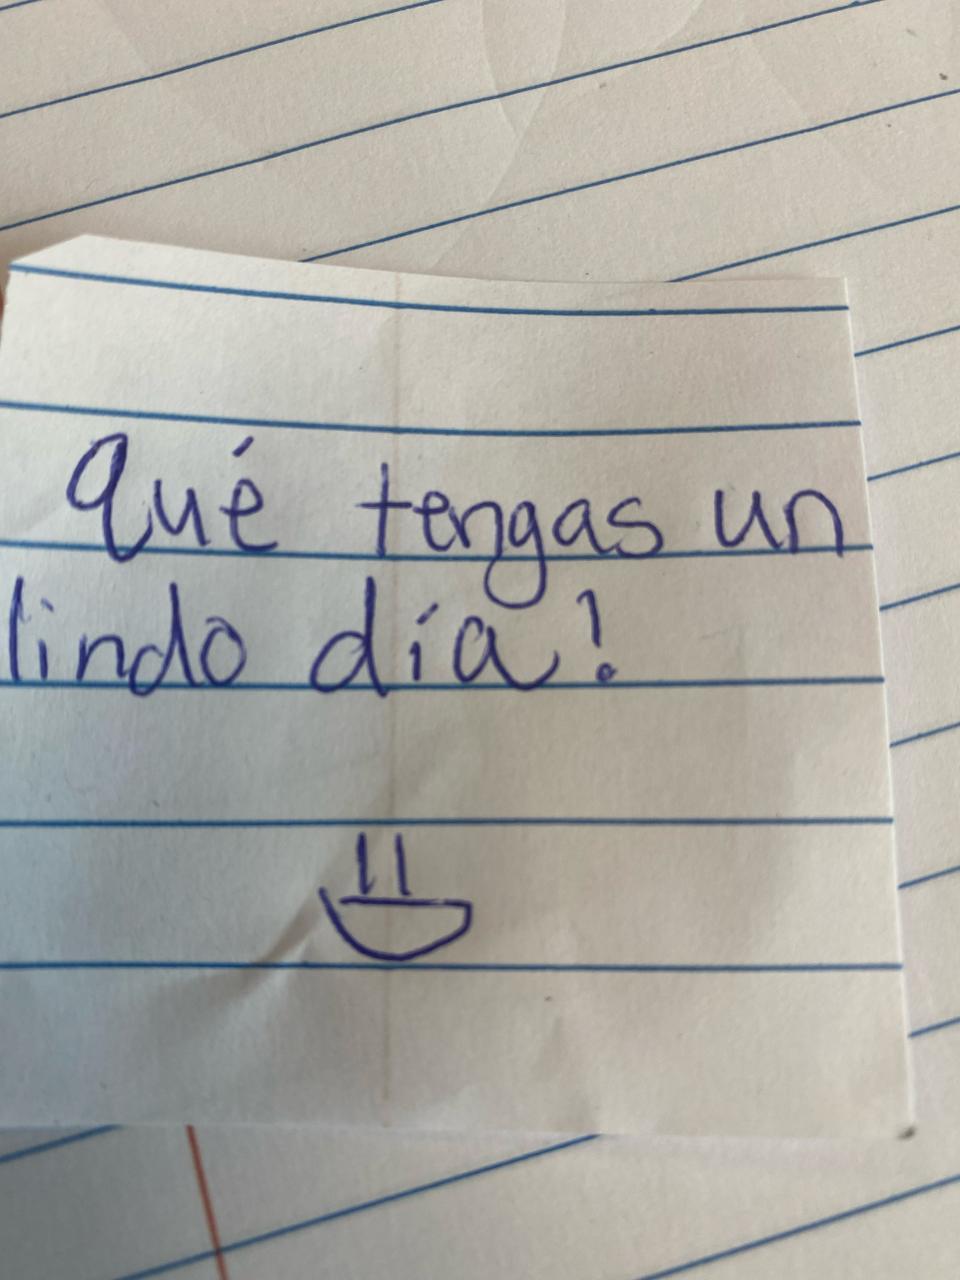 Qué tengas un
lindo día!